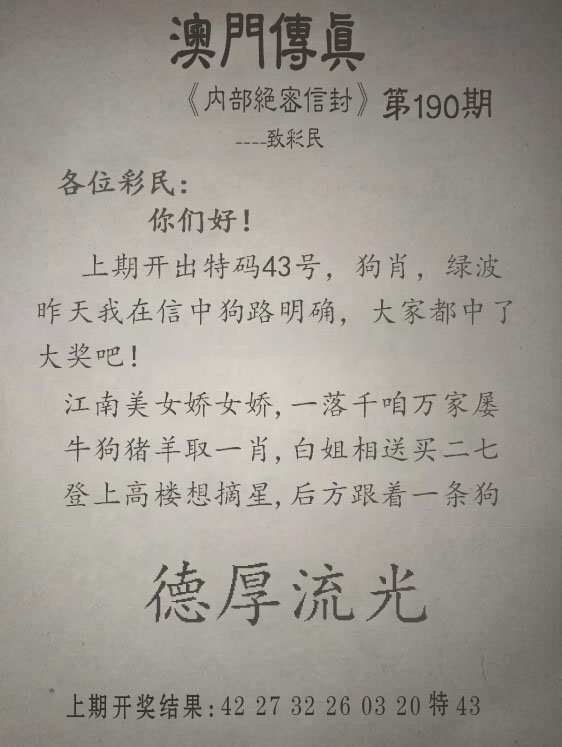 澳門傳眞
《内部絕密信封》第190期
----致彩民
各位彩民:
你们好!
上期开出特码43号，狗肖，绿波
昨天我在信中狗路明确，大家都中了
大奖吧!
江南美女娇女娇,一落千咱万家屡
牛狗猪羊取一肖,白姐相送买二七
登上高楼想摘星,后方跟着一条狗
德厚流光
上期开奖结果:42 27 32 26 03 20 特 43